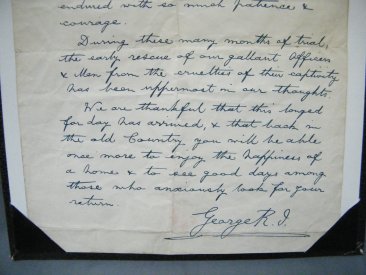 endured with so much patience &
courage.
During these many months of trial,
the early rescue of our gallant Officers
& Men from the cruelties of their captivity
has been uppermost in our thoughts.
We are thankful that this longed
for day has arrived, & that back in
the old Country you will be able
once more to enjoy the happiness of
a home & to see good days among
those who anxiously look for your
return.
George R.I.